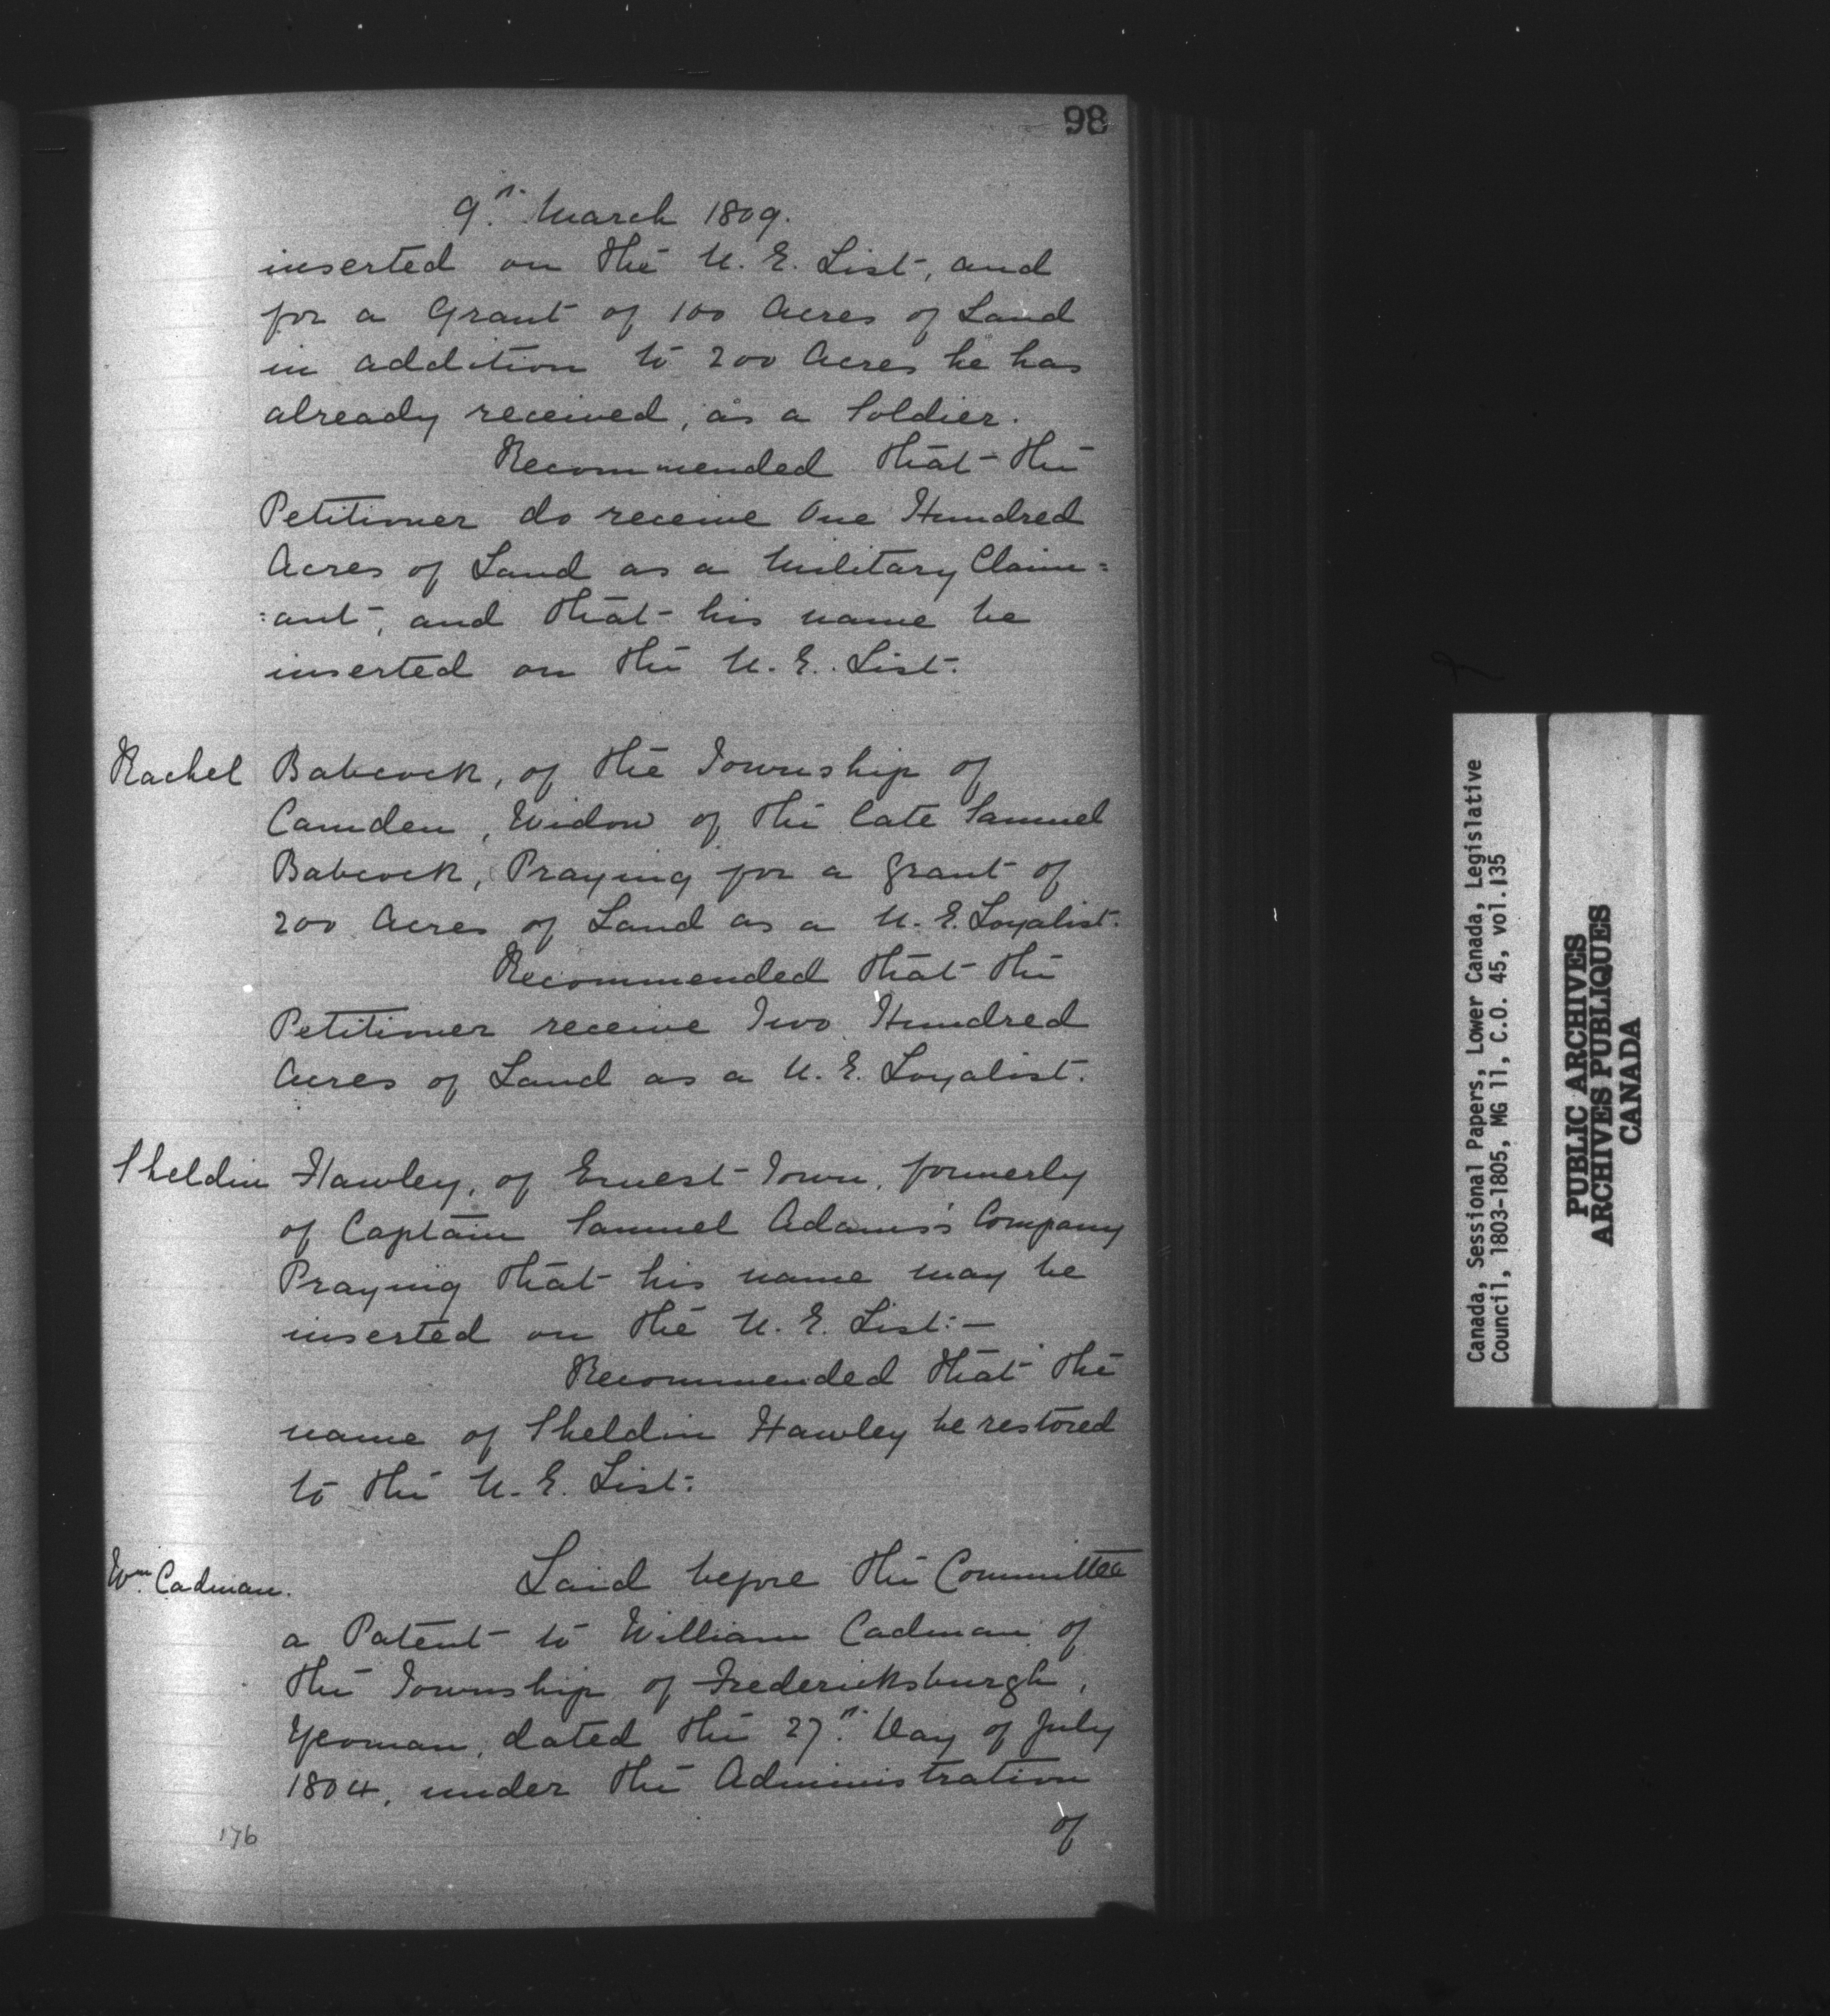 98
9th March 1809.
inserted on the U. E. List, and
for a Grant of 100 Acres of Land
in addition to 200 Acres he has
already received, as a Soldier.
Recommended that the
Petitioner do receive One Hundred
Acres of Land as a Military Claim=
:ant, and that his name be
inserted on the U. E. List.
Rachel Babcock, of the Township of
Camden, Widow of the late Samuel
Babcock, Praying for a grant of
200 Acres of Land as a U. E. Loyalist.
Recommended that the
Petitioner receive Two Hundred
Acres of Land as a U. E. Loyalist.
Sheldin Hawley, of Ernest-Town, formerly
of Captain Samuel Adams's Company
Praying that his name may be
inserted on the U. E. List:—
Recommended that the
name of Sheldin Hawley be restored
to the U. E. List:
Wm. Cadman. Laid before the Committee
a Patent to William Cadman of
the Township of Fredericksburgh,
Yeoman, dated the 27th Day of July
1804, under the Administration
of
176
Canada, Sessional Papers, Lower Canada, Legislative
Council, 1803-1805, MG 11, C.O. 45, vol.135
PUBLIC ARCHIVES
ARCHIVES PUBLIQUES
CANADA